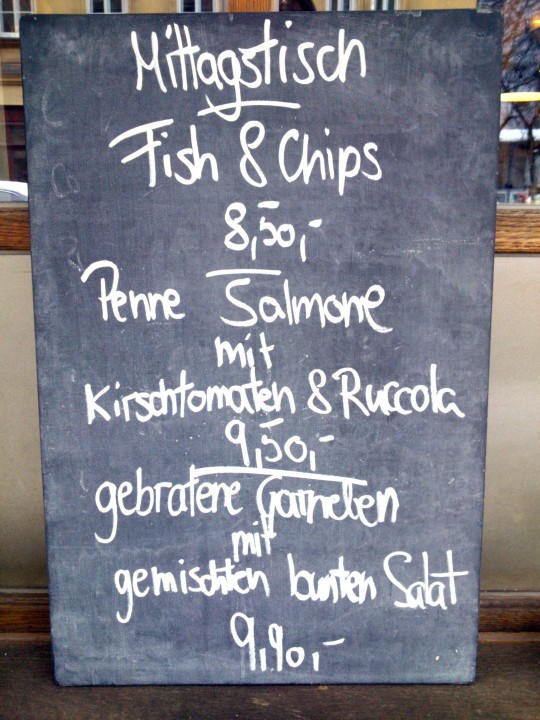 Mittagstisch
Fish & Chips
8,50,-
Penne Salmone
mit
Kirschtomaten & Ruccola
9,50,-
gebratene Garnelen
mit
gemischten bunten Salat
9,90,-